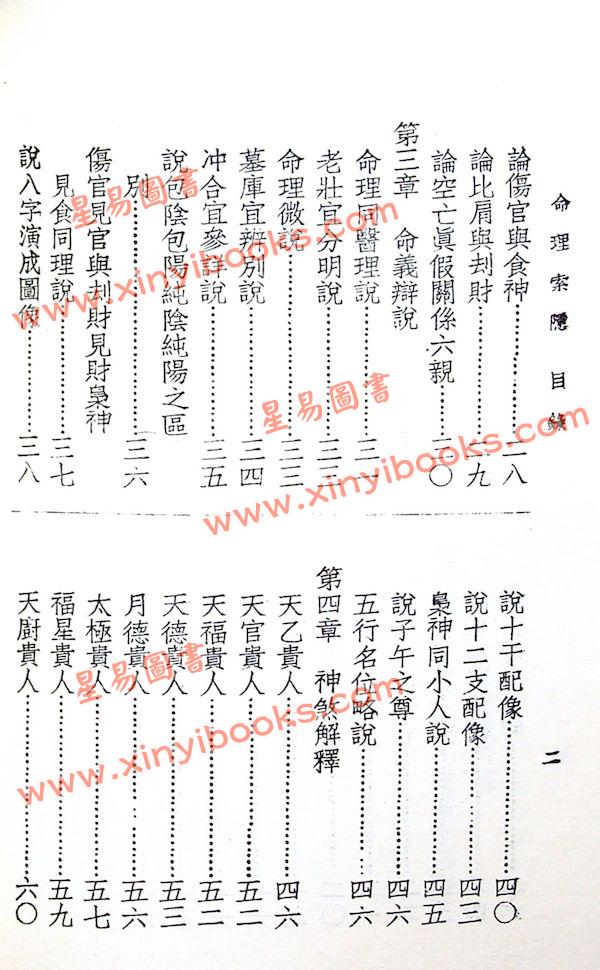 命理索隱 目錄
二
論傷官與食神…………二八
論比肩與刦財…………二九
論空亡眞假關係六親…………三〇
第三章 命義辯說
命理同醫理說…………三一
老壯宜分明說…………三三
命理微說…………三三
墓庫宜辨別說…………三四
冲合宜參詳說…………三五
說包陰包陽純陰純陽之區
別…………三六
傷官見官與刦財見財梟神
見食同理說…………三七
說八字演成圖像…………三八
說十干配像…………四〇
說十二支配像…………四三
梟神同小人說…………四五
說子午之尊…………四六
五行名位略說…………四六
第四章 神煞解釋
天乙貴人…………四六
天官貴人…………五二
天福貴人…………五二
天德貴人…………五三
月德貴人…………五六
太極貴人…………五七
福星貴人…………五九
天廚貴人…………六〇
星易圖書
www.xinyibooks.com
星易圖書
www.xinyibooks.com
星易圖書
www.xinyibooks.com